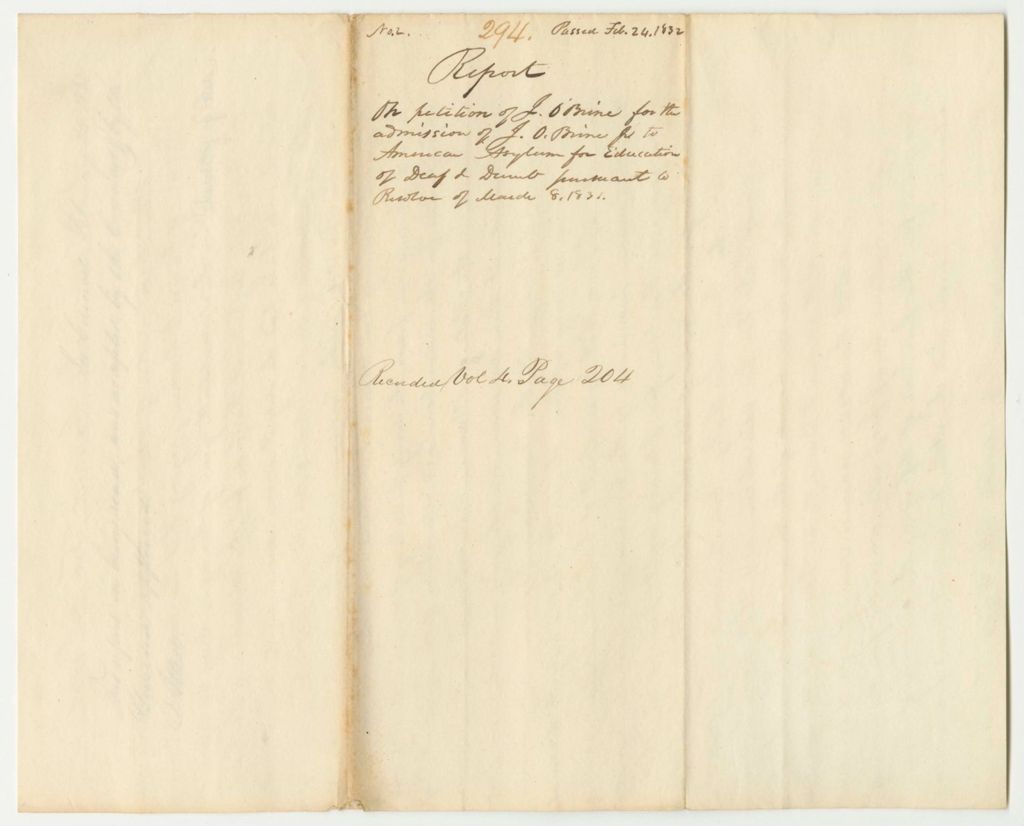 No. 2. 294. Passed Feb. 24, 1832
Report
On petition of J. O'Brine for the
admission of J. O. Brine Jr to
American Asylum for Education
of Deaf & Dumb pursuant to
Resolve of March 8, 1831.
Recorded Vol 4. Page 204